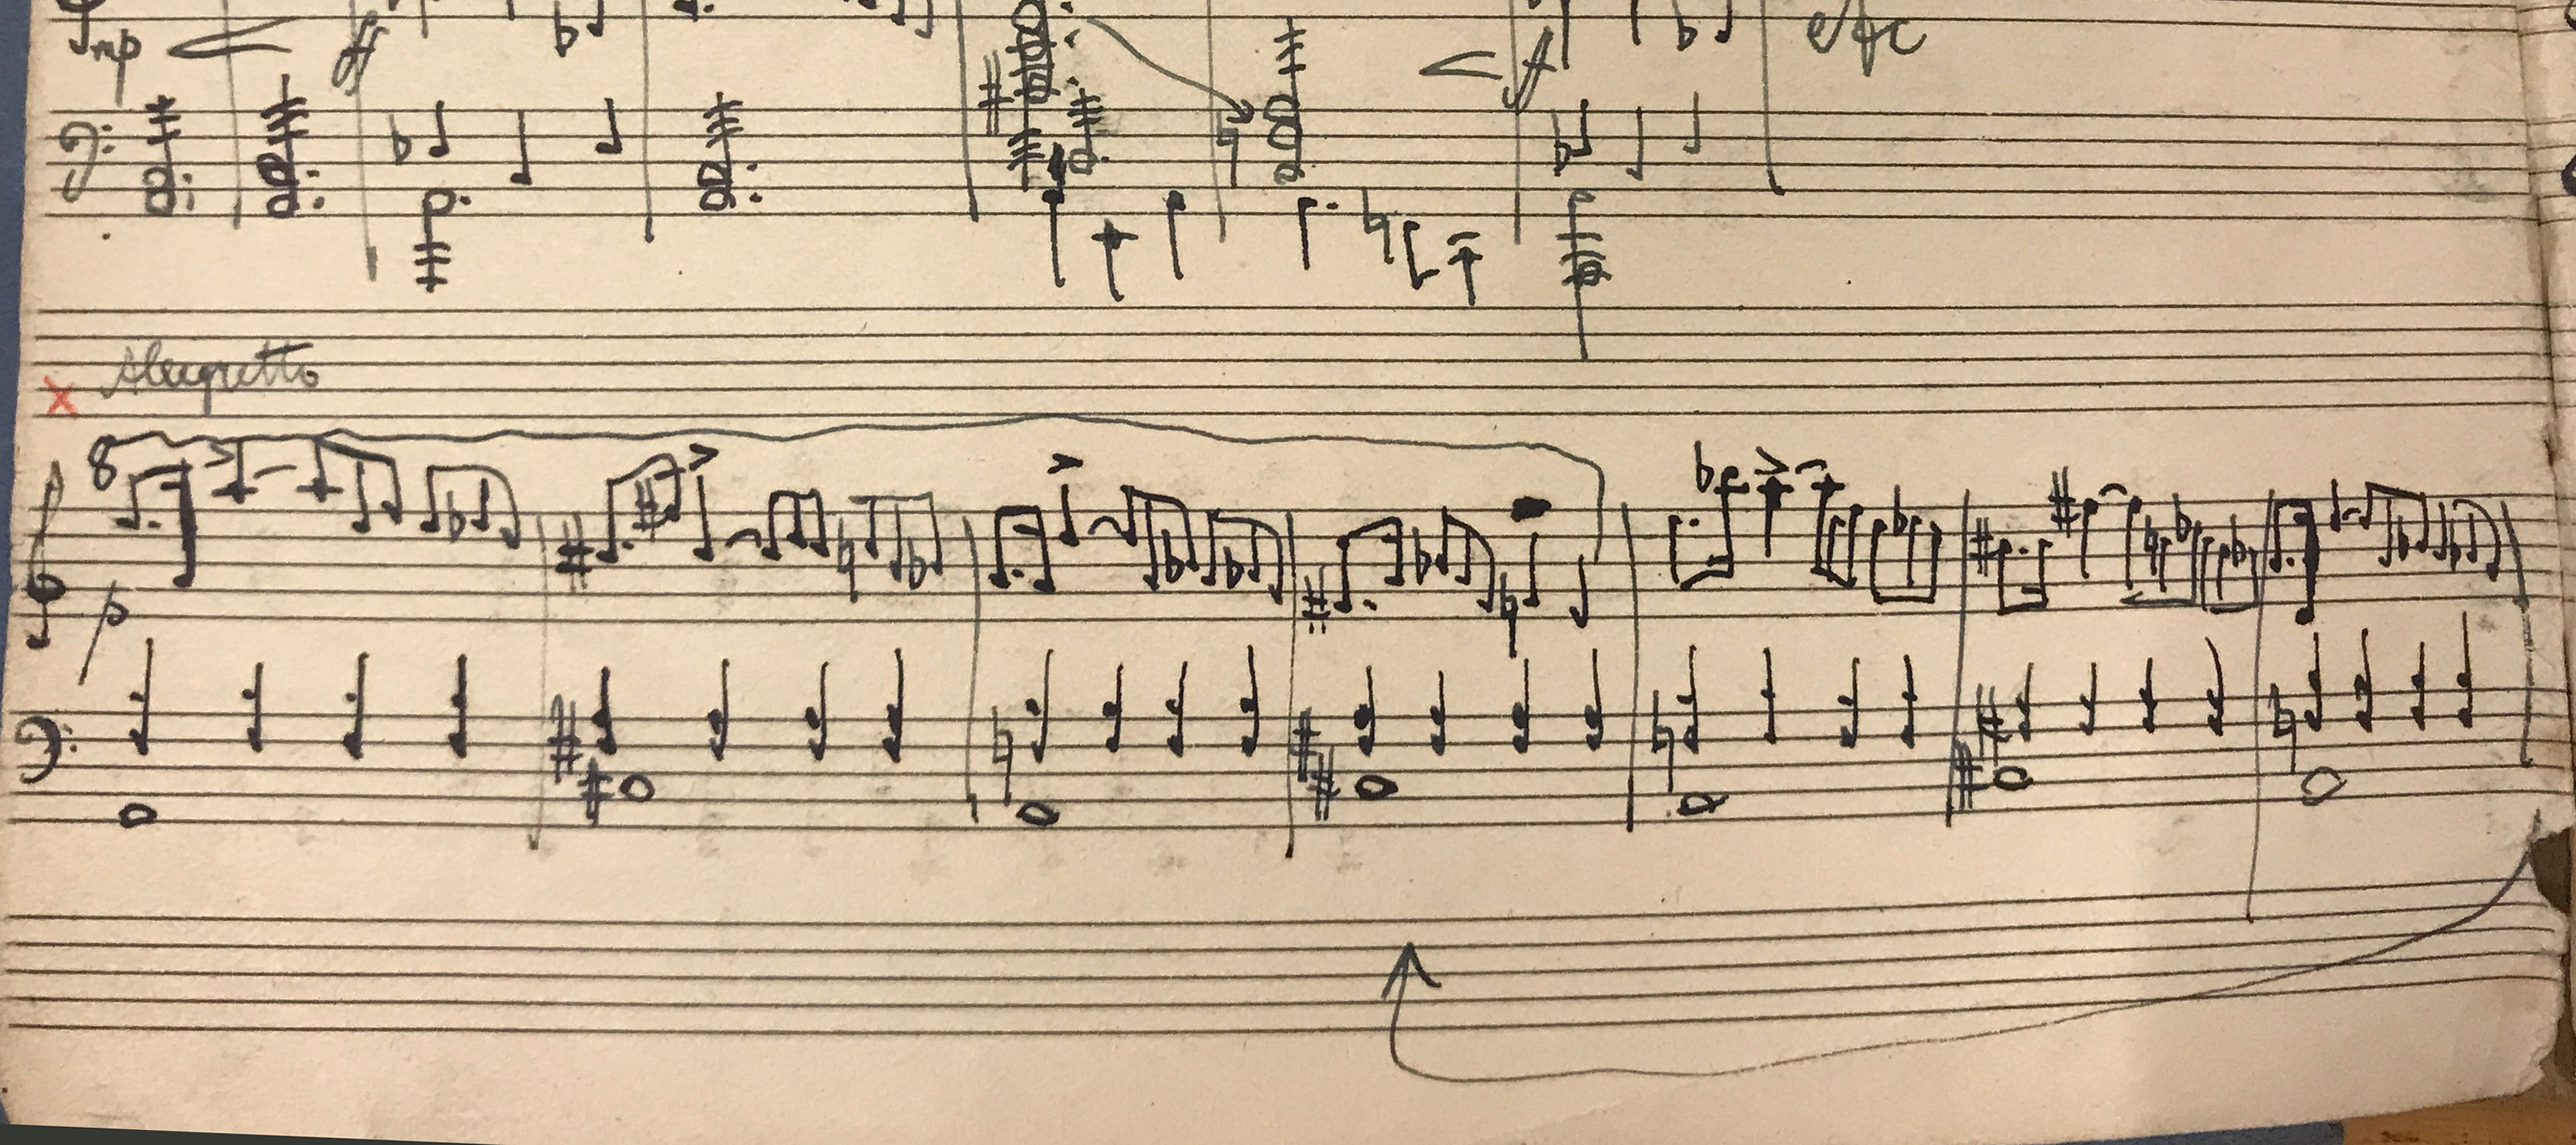 mp ff ff etc
x Allegretto
8
p